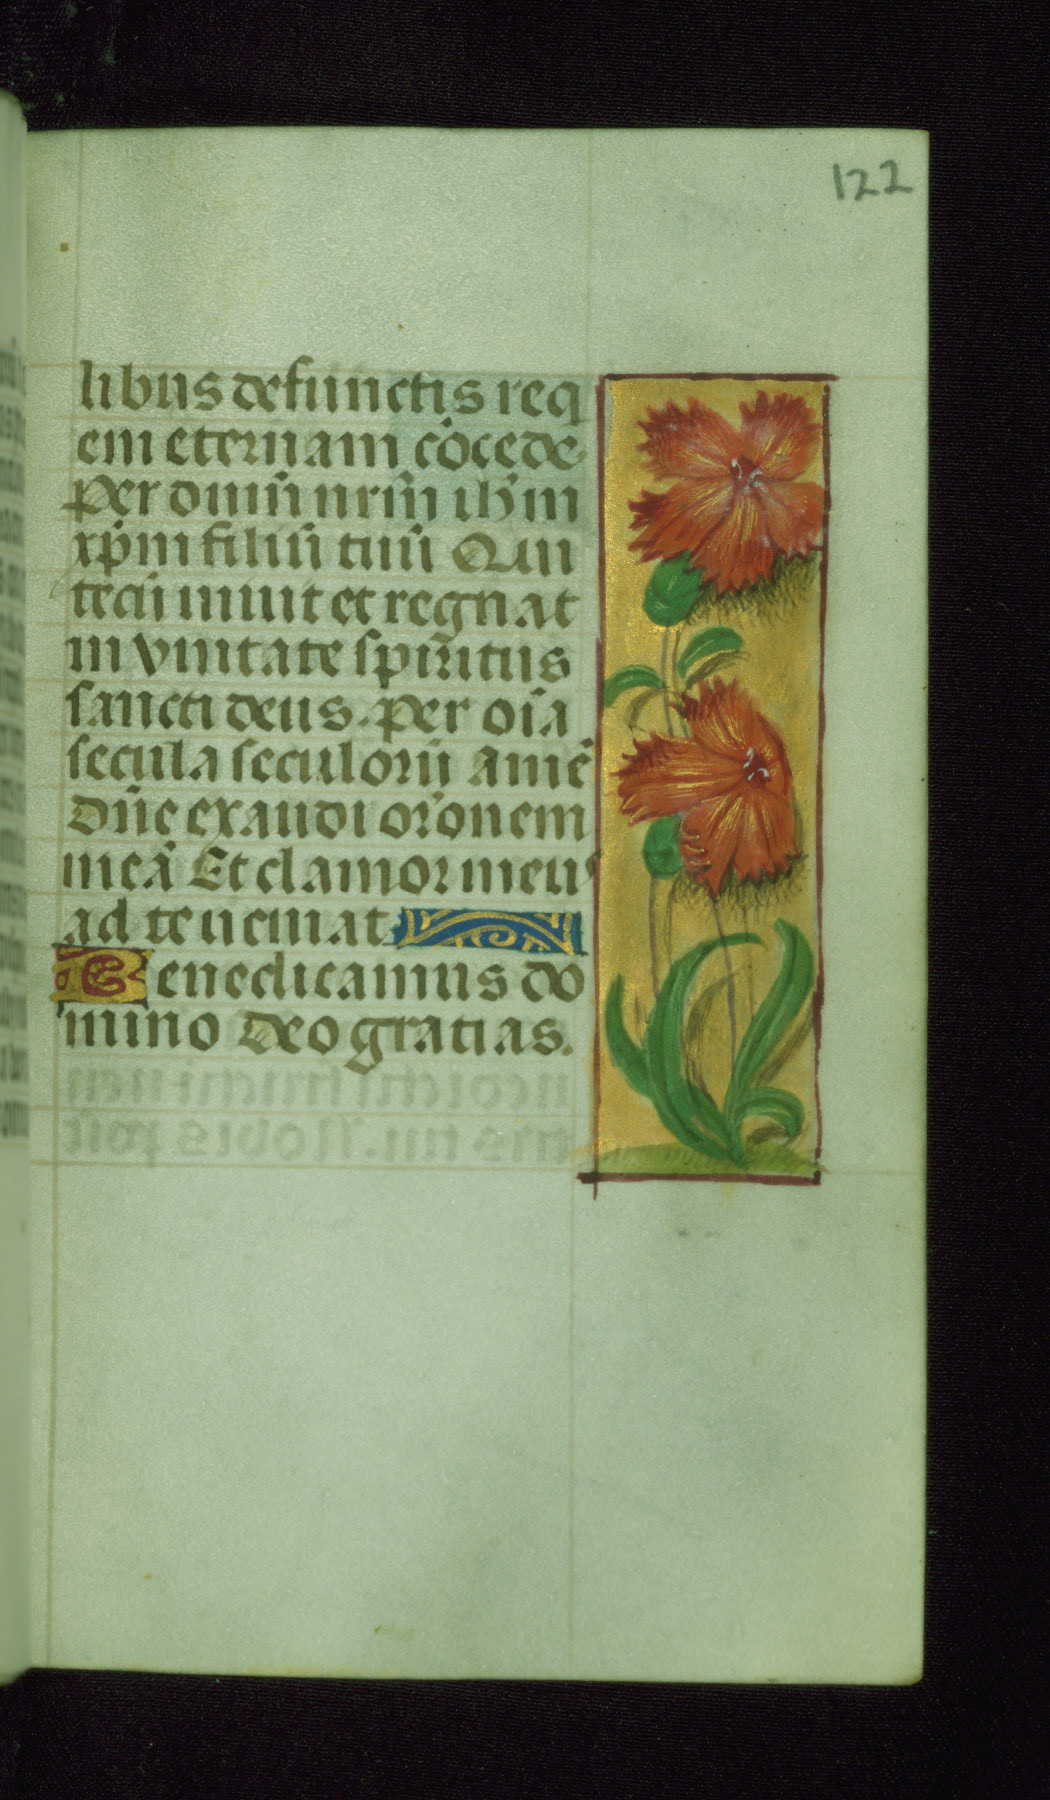 122
libus defunctis req
em eternam cōcede.
Per dnm̄ nrm̄ ihm̄
xp̄m filiū tuū Qui
tecū uiuit et regnat
in vnitate spiritus
sancti deus. Per oīa
secula seculorū amē
Dn̄e exaudi orōnem
meā Et clamor meus
ad te ueniat.
Benedicamus do
mino Deo gratias.